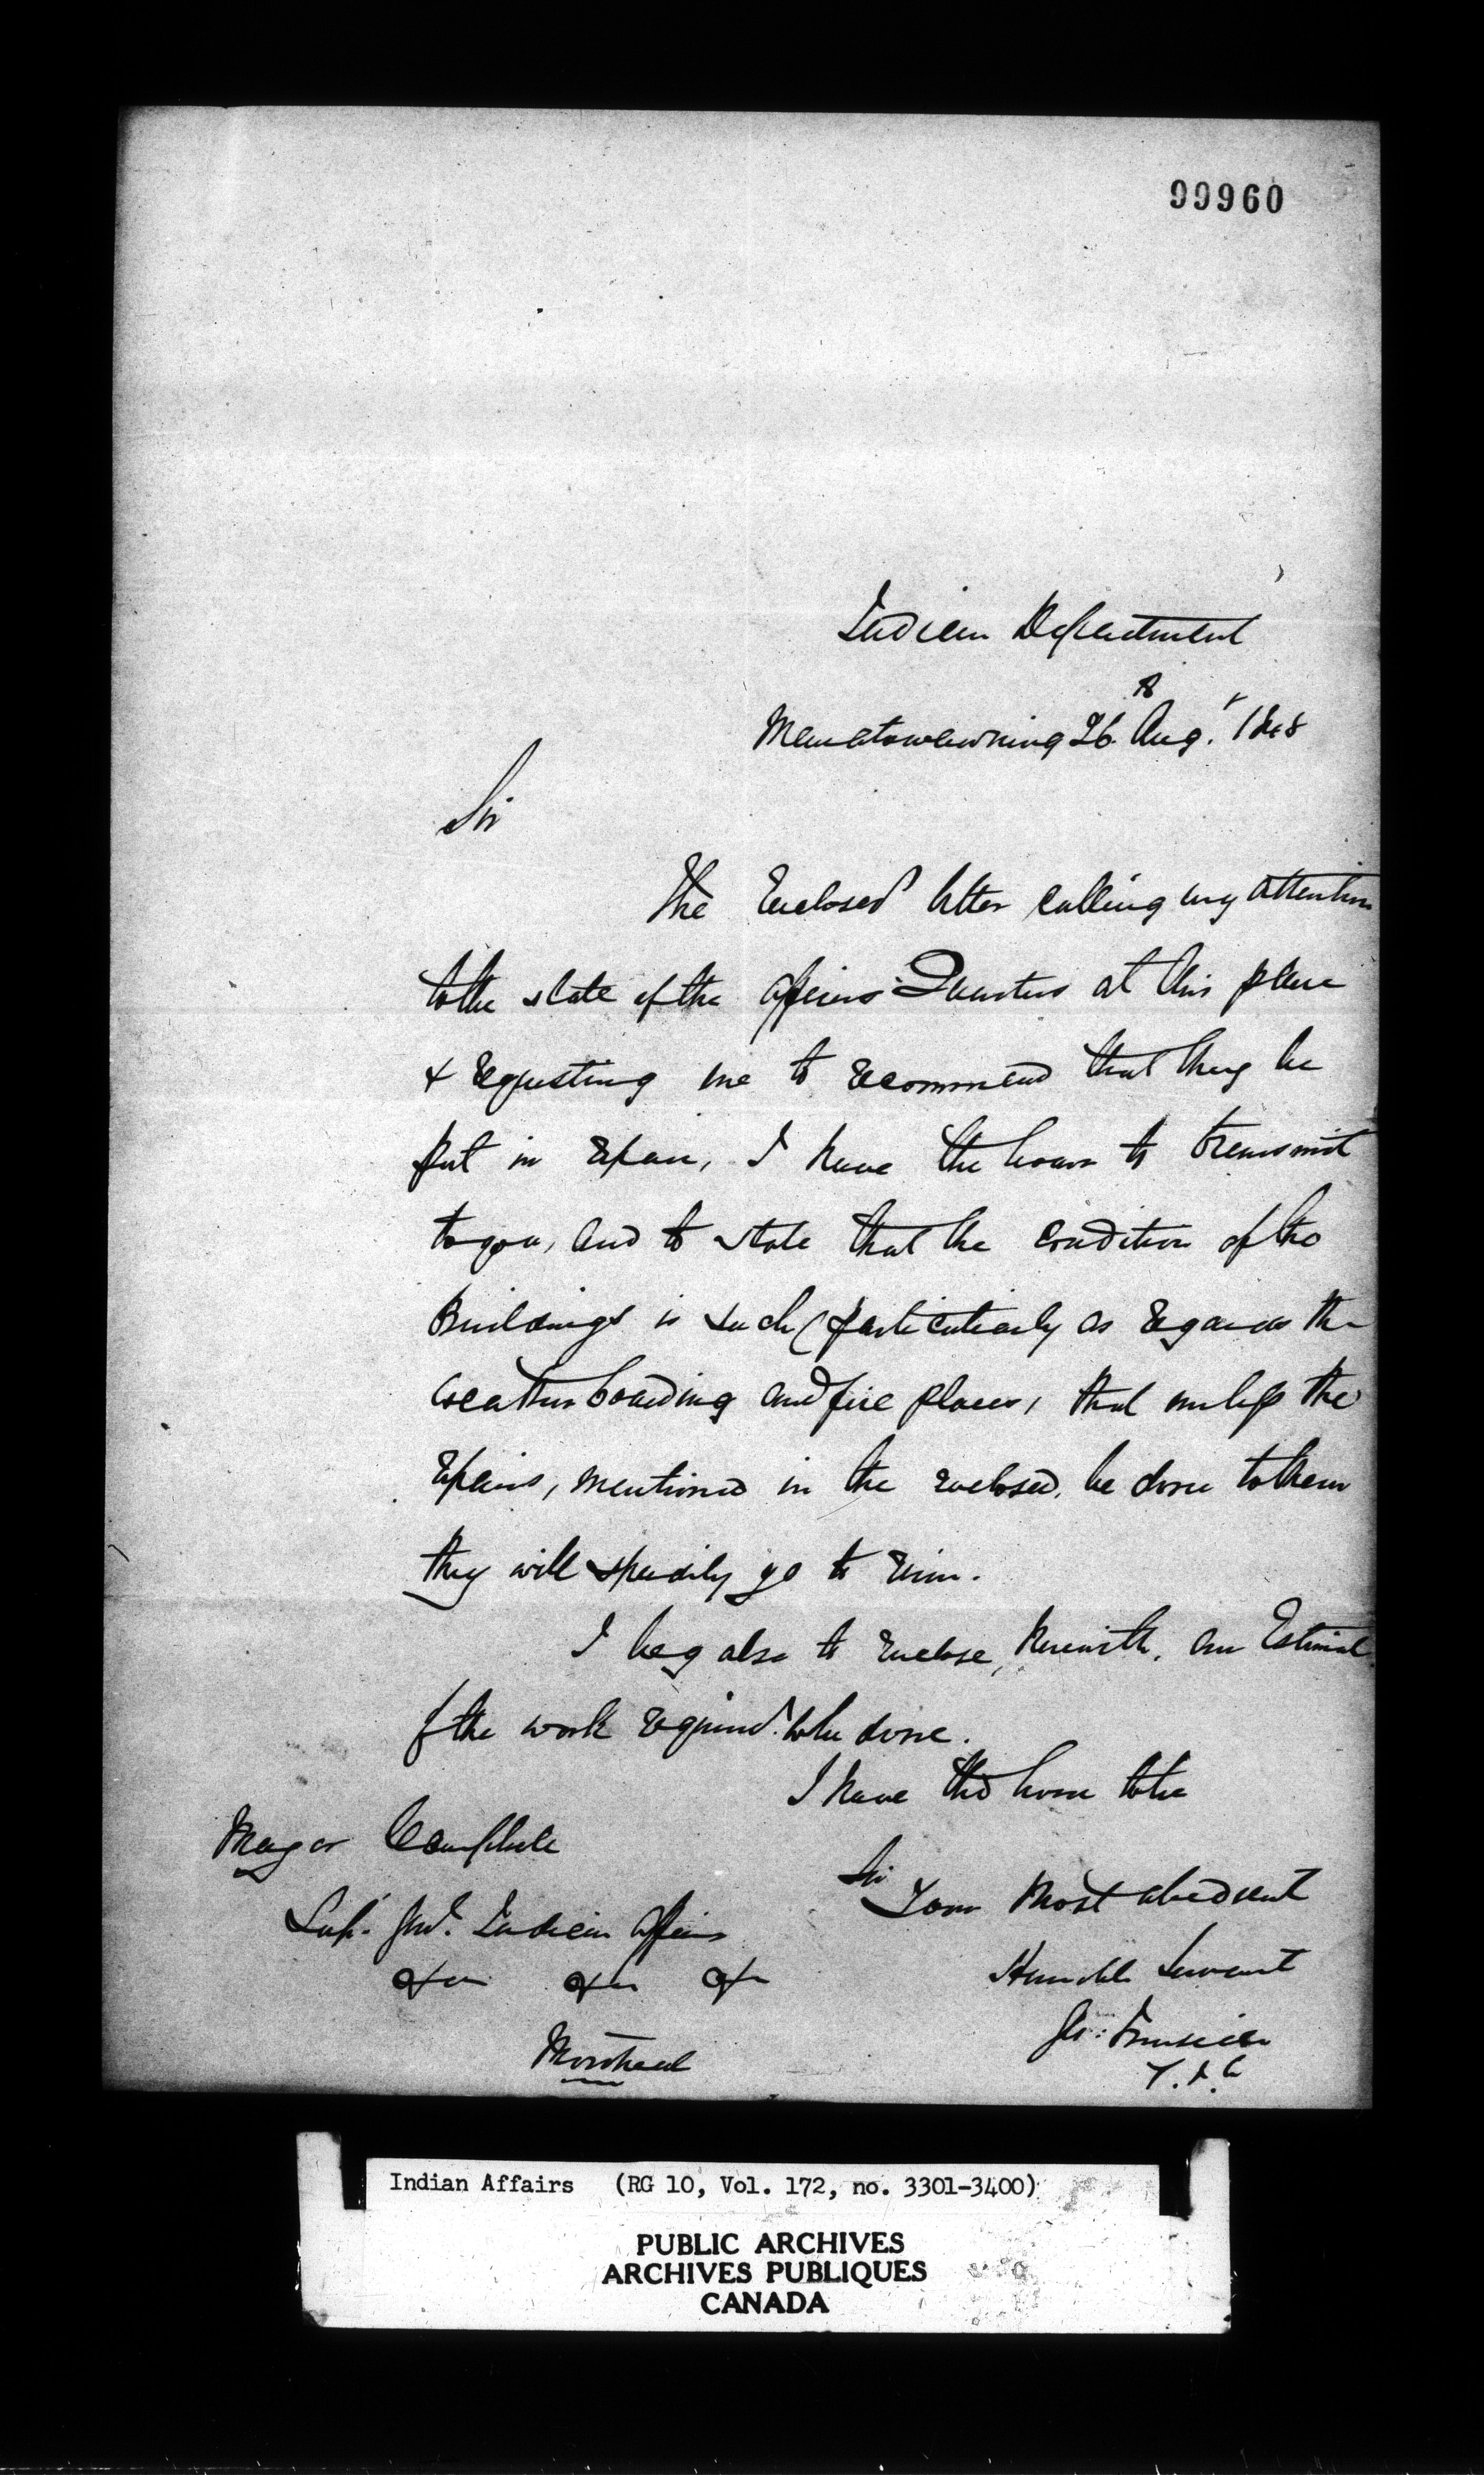 99960
Indian Department
Manatowawning 26th Augt 1848
Sir
The Enclosed letter calling my attention
to the state of the officers Quarters at this place
& requesting me to recommend that they be
put in repair, I have the honor to transmit
to you, and to state that the condition of the
Buildings is such (particularly as regards the
weatherboarding and fire places, that unless the
repairs, mentioned in the enclosed, be done to them
they will speedily go to ruin.
I beg also to enclose, herewith, an Estimate
of the work required to be done.
I have the honor to be
Major Campbell
Sir
Your Most obedient
Supt. Genl. Indian Affairs
Humble Servant
&c &c &c
Montreal
Indian Affairs (RG 10, Vol. 172, no. 3301-3400)
PUBLIC ARCHIVES
ARCHIVES PUBLIQUES
CANADA